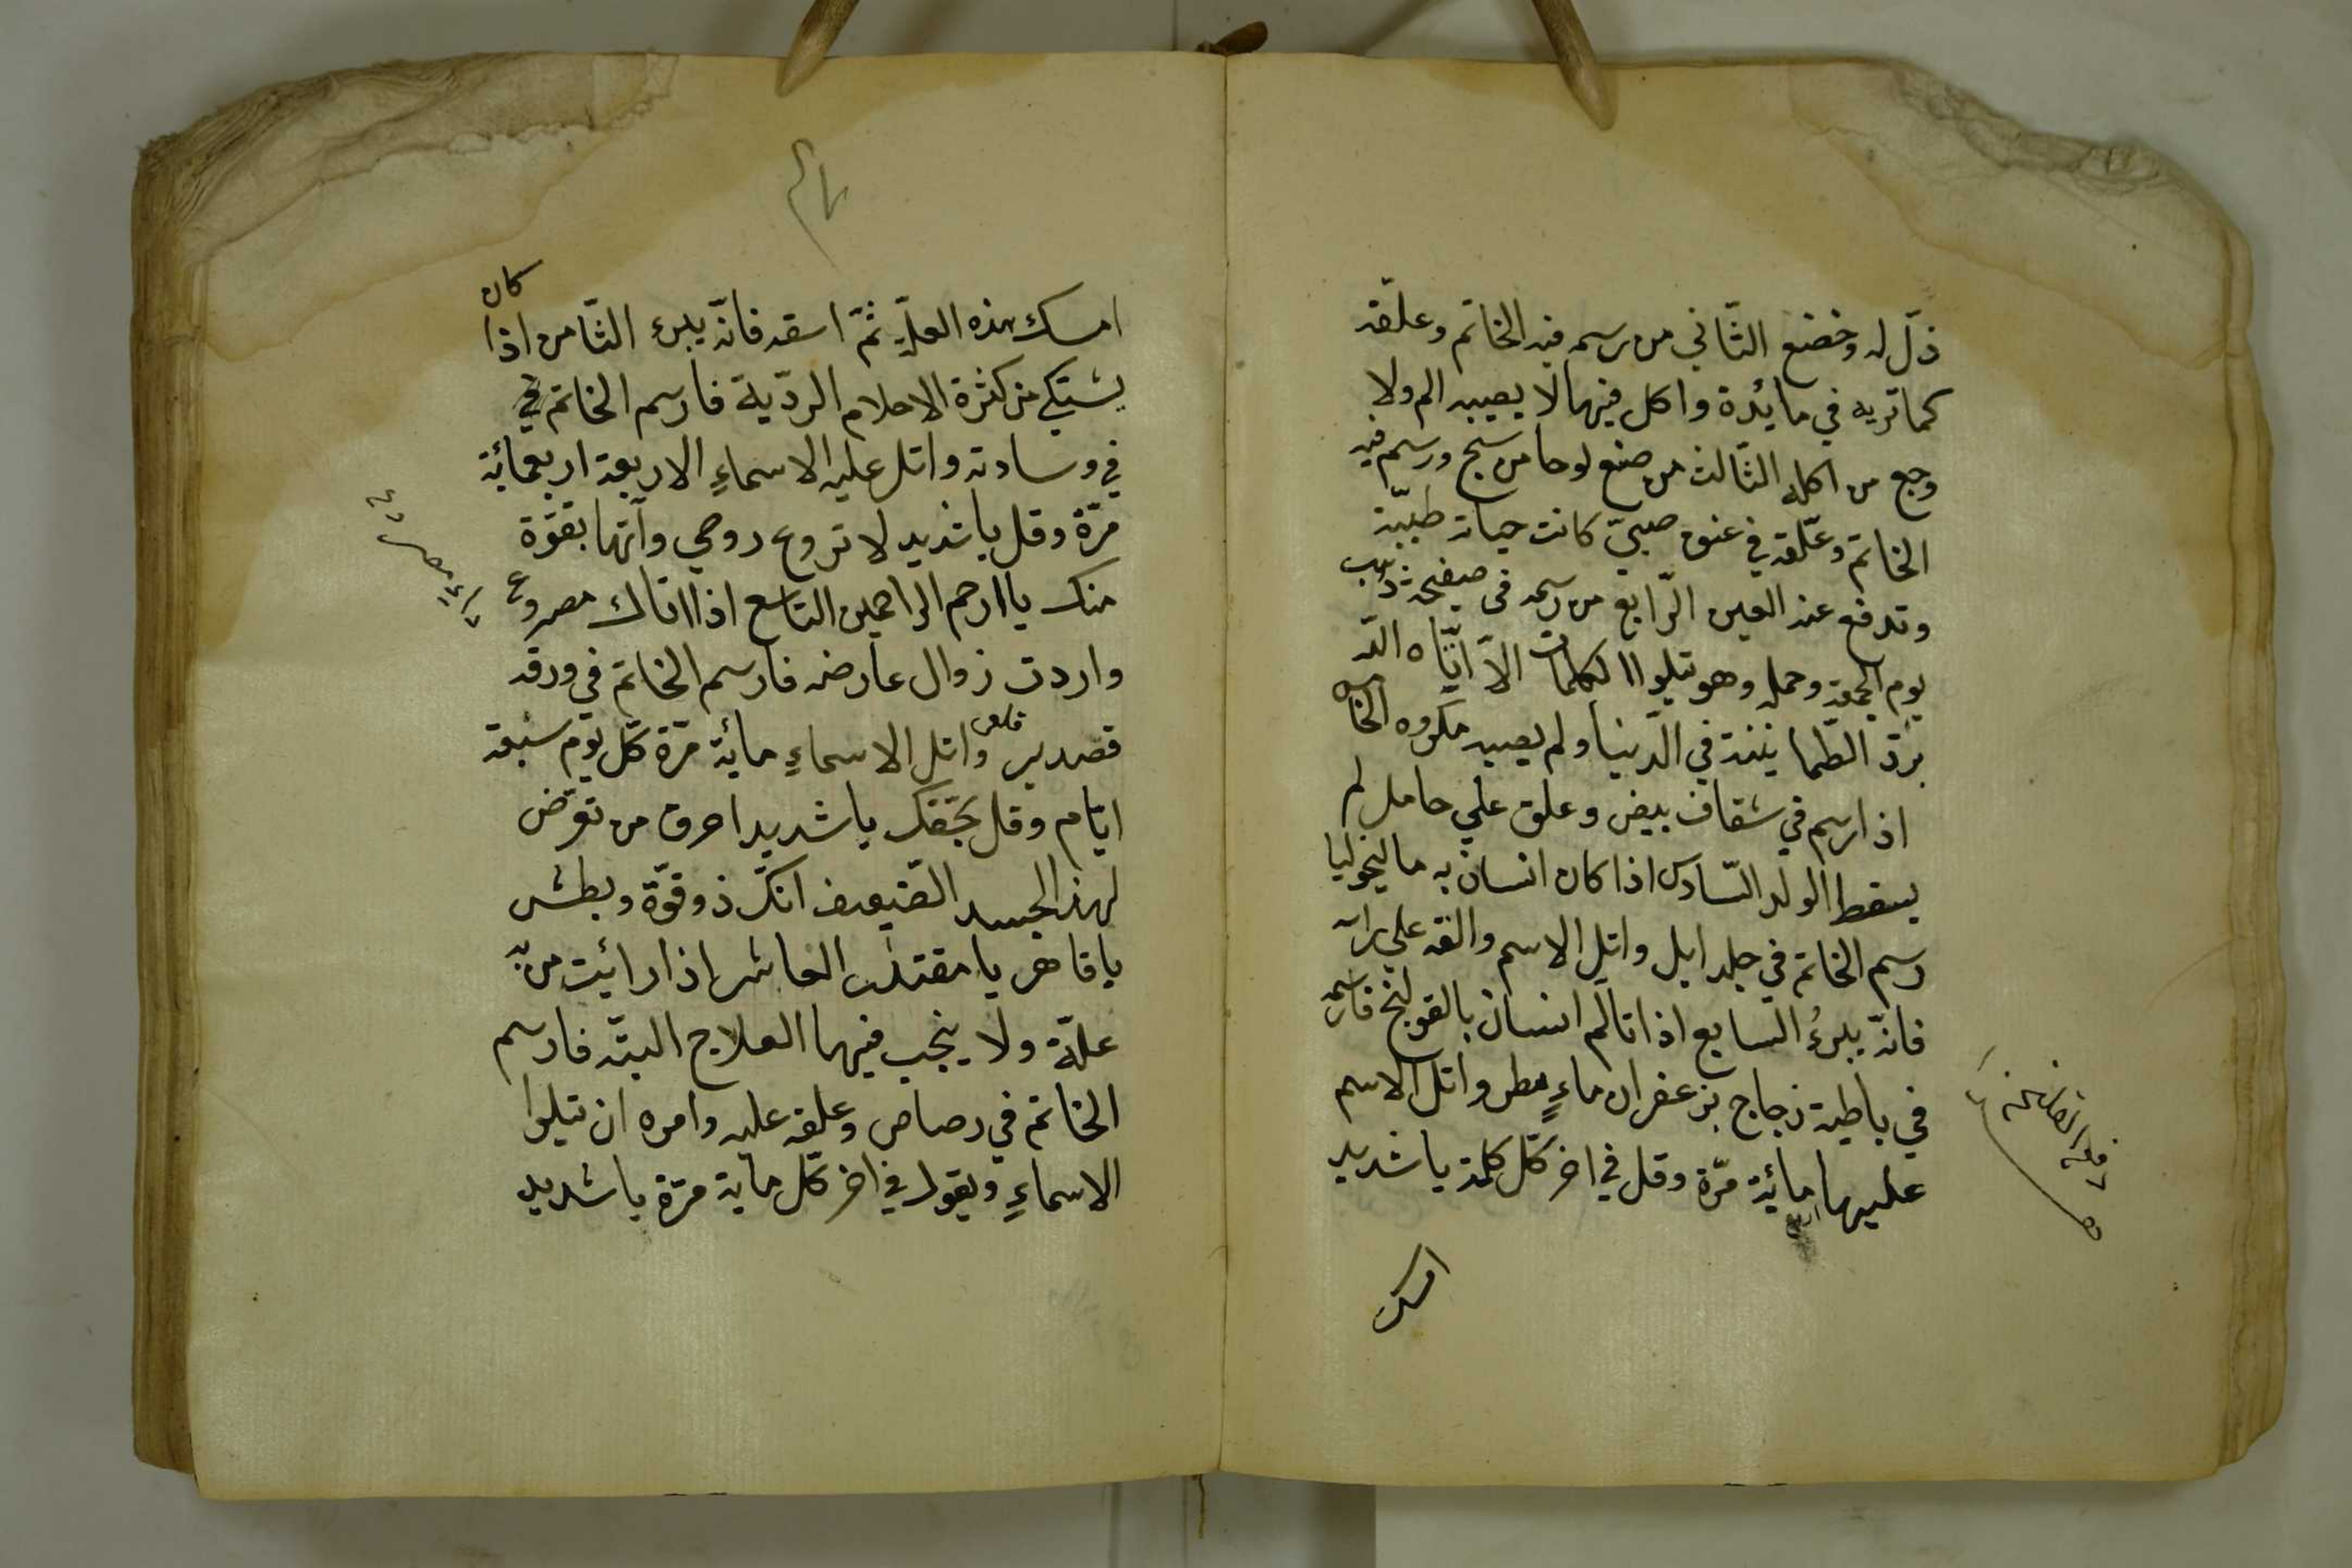 ذلّ له وخضع الثّاني من رسم فيه الخاتم وعلّقه
كما تريه في مائدة واكل فيها لا يصيبه الم ولا
وجع من اكله الثّالث من صنع لوحا من سبج ورسم فيه
الخاتم وعلّقه في عنق صبيّ كانت حياته طيّبة
وتدفع عنه العين الرّابع من رسمه في صفيحة ذهب
يوم الجمعة وحمله وهو يتلوا الكلمات الّا ايّاه اللّه
برزق الطّمانينة في الدّنيا ولم يصيبه مكروه الخامس
اذا رسم في شقاف بيض وعلق علي حامل لم
يسقط الولد السّادس اذا كان انسان به ماليخوليا
رسم الخاتم في جلد ايل واتل الاسم والقه علي راسه
فانّه يبرئ السابع اذا تالم انسان بالقولنج فارسمه
في باطية زجاج بزعفران ماءٍ مطر واتل الاسم
عليها مائة مرّة وقل في اخر كلّ كلمة يا شديد
امسك
كان
امسك هذه العلة ثمّ اسقه فانّه يبرء الثّامن اذا
يشتكي من كثرة الاحلام الرديّة فارسم الخاتم في
في وسادته واتل عليه الاسماءِ الاربعة اربعمائة
مرّة وقل يا شديد لا تروع روحي وآتها بقوّة
منك يا ارحم الراحمين التاسع اذا اتاك مصروع
واردت زوال عارضه فارسم الخاتم في ورقه
قلعي
قصدير واتل الاسماءِ مائة مرّة كلّ يوم سبعة
ايّام وقل بحقّك يا شديد احرق من تعرّض
لهذ الجسد الضّعيف انّك ذو قوّة وبطش
يا قاهر يا مقتدر العاشر اذا رائيت من به
علّة ولا ينجب فيها العلاج البتّه فارسم
الخاتم في رصاص وعلقه عليه وامره ان يتلوا
الاسماءِ ويقول في اخر كلّ ماية مرّة يا شديد